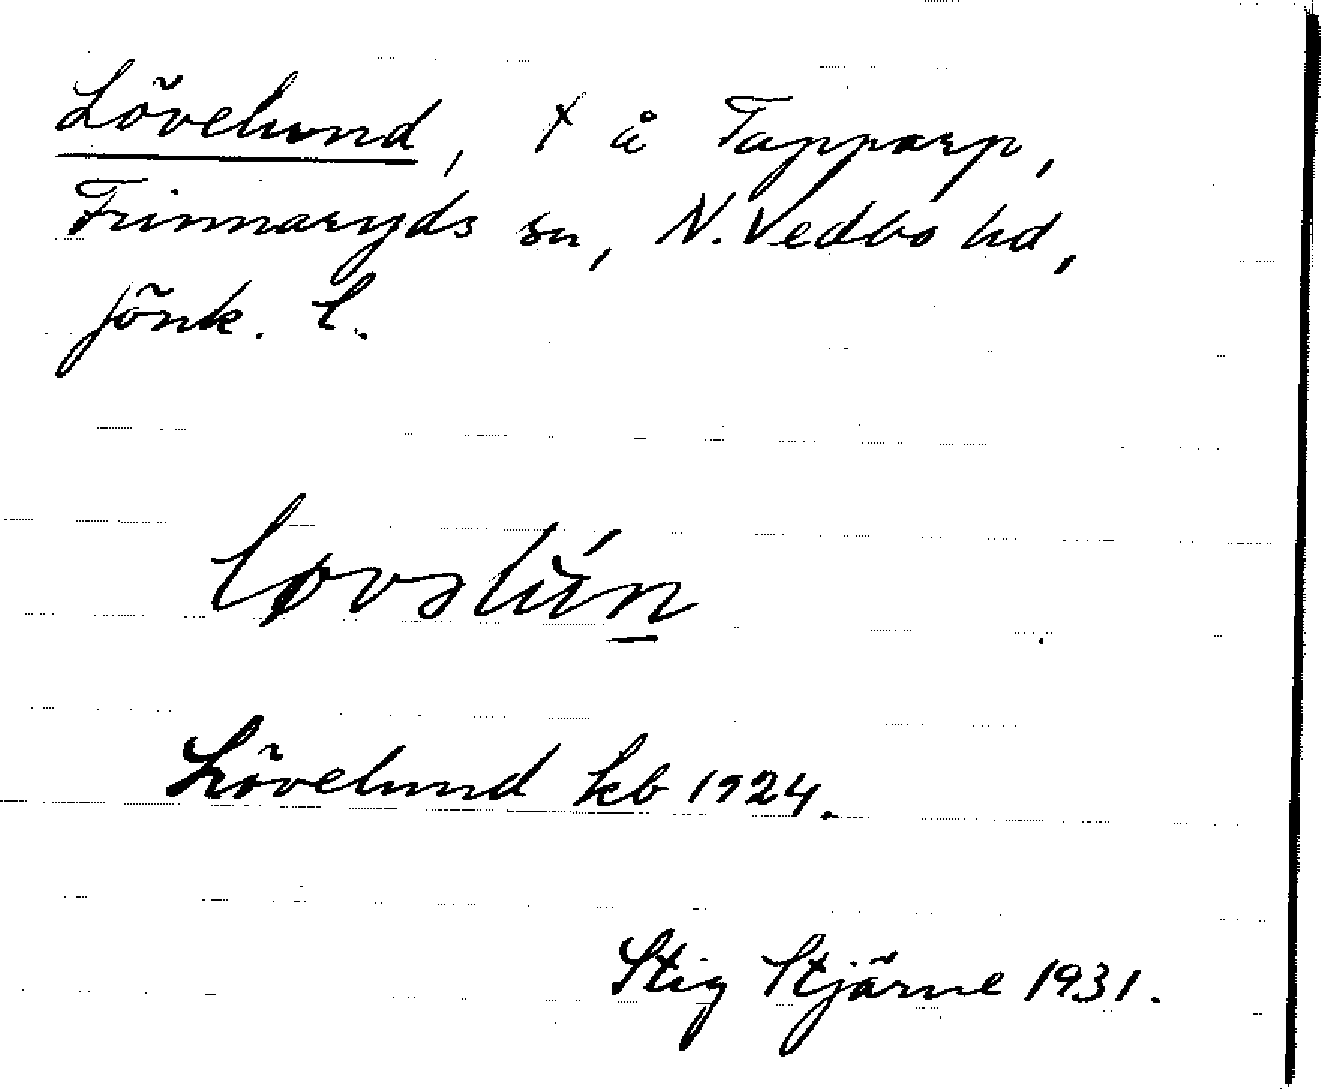 Lövelund, × å Tapparp,
Frinnaryds sn, N. Vedbo hd,
Jönk. l.
Lövelund kb 1924.
Stig Stjärne 1931.